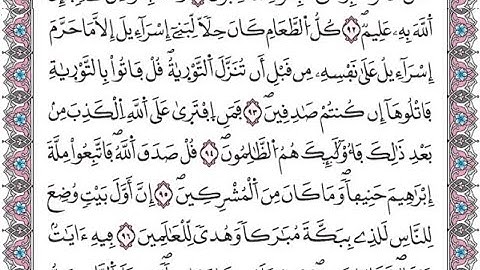 اَ۬للَّهَ بِهِۦ عَلِيمٞۖ ٩٢ كُلُّ اُ۬لطَّعَامِ كَانَ حِلّاٗ لِّبَنِےٓ إِسْرَآءِيلَ إِلَّا مَا حَرَّمَ
إِسْرَآءِيلُ عَلَىٰ نَفْسِهِۦ مِن قَبْلِ أَن تُنَزَّلَ اَ۬لتَّوْر۪يٰةُۖ قُلْ فَاتُواْ بِالتَّوْر۪يٰةِ
فَاتْلُوهَآ إِن كُنتُمْ صَٰدِقِينَۖ ٩٣ فَمَنِ اِ۪فْتَر۪يٰ عَلَى اَ۬للَّهِ اِ۬لْكَذِبَ مِنۢ
بَعْدِ ذَٰلِكَ فَأُوْلَٰٓئِكَ هُمُ اُ۬لظَّٰلِمُونَۖ ٩٤ قُلْ صَدَقَ اَ۬للَّهُۖ فَاتَّبِعُواْ مِلَّةَ
إِبْرَٰهِيمَ حَنِيفاٗۖ وَمَا كَانَ مِنَ اَ۬لْمُشْرِكِينَۖ ٩٥ إِنَّ أَوَّلَ بَيْتٖ وُضِعَ
لِلنَّاسِ لَلذِے بِبَكَّةَ مُبَٰرَكاٗ وَهُديٗ لِّلْعَٰلَمِينَۖ ٩٦ فِيهِ ءَايَٰتُۢ